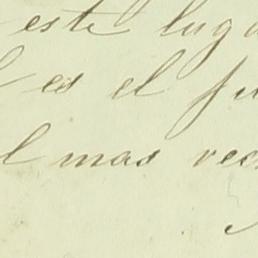 este luga
es el fu
l mas vec